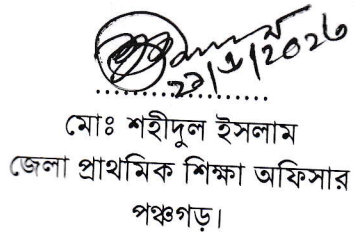 মোঃ শহীদুল ইসলাম
জেলা প্রাথমিক শিক্ষা অফিসার
পঞ্চগড়।